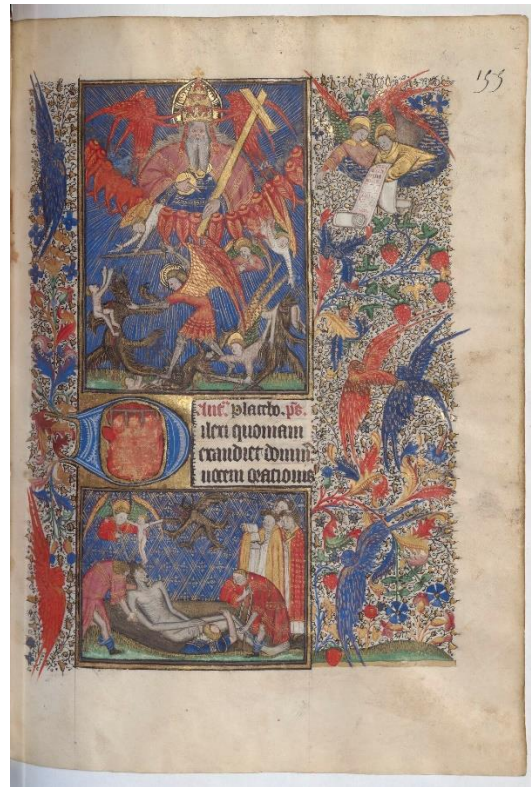 155
Ant'. Placebo. ps.
ilexi quoniam
exaudiet domin̄
uocem orationis